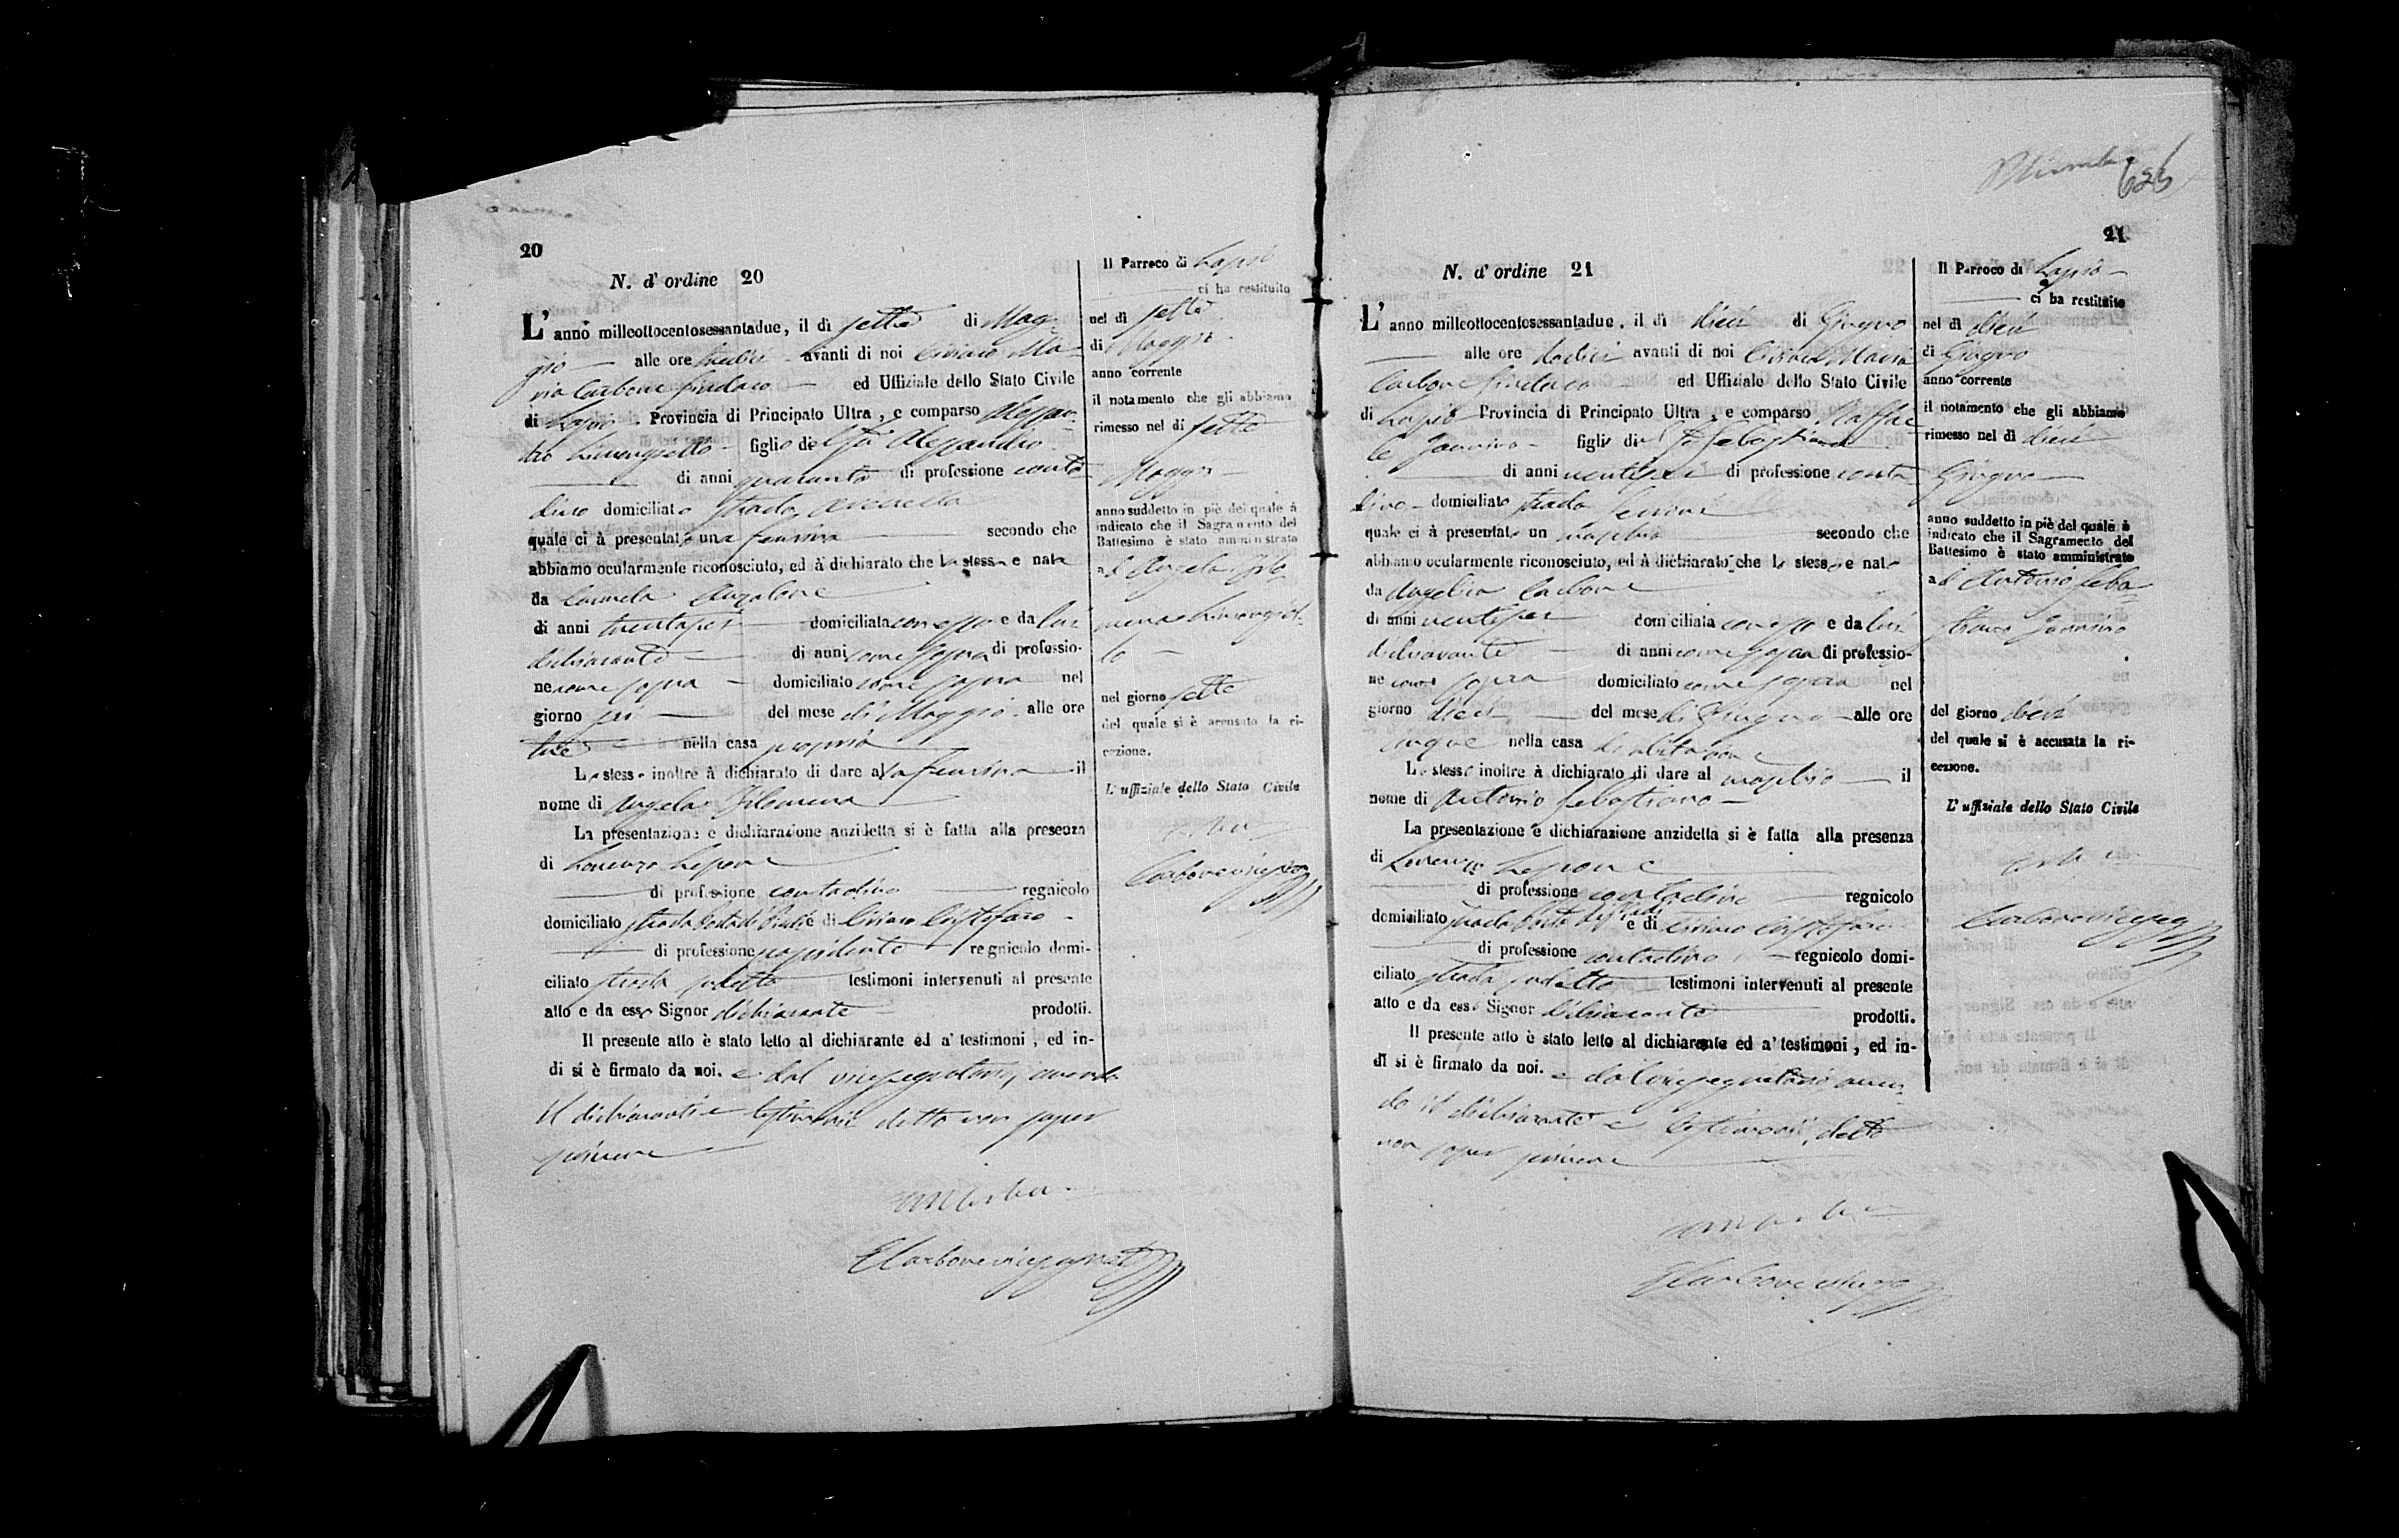 20
N. d' ordine 20
L' anno milleottocentosessantadue, il dì sette di Mag-
gio alle ore avanti di noi Ciriaco Ma-
ria Carbone Sindaco ed Uffiziale dello Stato Civile
di Lapio Provincia di Principato Ultra, e comparso Alessan-
dro figlio del fu Alessandro
di anni quaranta di professione conta-
dino domiciliato strada
quale ci à presentato una femina secondo che
abbiamo ocularmente riconosciuto, ed à dichiarato che la stessa e nata
da Carmela Anzalone
di anni trentasei domiciliata con esso e da lui
dichiarante di anni come sopra di professio-
ne come sopra domiciliato come sopra nel
giorno sei del mese di Maggio alle ore
tre nella casa propria
Lo stesso inoltre à dichiarato di dare alla femina il
nome di Angela Filomena
La presentazione e dichiarazione anzidetta si è fatta alla presenza
di Lorenzo Lepore
di professione contadino regnicolo
domiciliato strada e di Ciriaco Cristofaro
di professione possidente regnicolo domi-
ciliato strada sudetta testimoni intervenuti al presente
atto e da esso Signor dichiarante prodotti.
Il presente atto è stato letto al dichiarante ed a' testimoni, ed in-
di si è firmato da noi. e dal vicesegretario, avendo
il dichiarante e testimonii detto non saper
scrivere
Il Parroco di Lapio
ci ha restituito
nel dì sette
di Maggio
anno corrente
il notamento che gli abbiamo
rimesso nel dì sette
Maggio
anno suddetto in piè del quale à
indicato che il Sagramento del
Battesimo è stato amministrato
ad Angela Filo-
mena
lo
nel giorno sette
del quale si è accusato la ri-
cezione.
L' uffiziale dello Stato Civile
626
21
N. d' ordine 21
L' anno milleottocentosessantadue, il dì dieci di Giugno
alle ore dodici avanti di noi Ciriaco Maria
Carbone Sindaco ed Uffiziale dello Stato Civile
di Lapio Provincia di Principato Ultra, e comparso Raffae-
le Jannino figlio di fu Sebastiano
di anni ventisei di professione conta-
dino domiciliato strada
quale ci à presentato un maschio secondo che
abbiamo ocularmente riconosciuto, ed à dichiarato che lo stesso e nato
da Angelica Carbone
di anni ventisei domiciliata con esso e da lui
dichiarante di anni come sopra di professio-
ne come sopra domiciliato come sopra nel
giorno dieci del mese di Giugno alle ore
cinque nella casa di abitazione
Lo stesso inoltre à dichiarato di dare al maschio il
nome di Antonio Sebastiano
La presentazione e dichiarazione anzidetta si è fatta alla presenza
di Lorenzo Lepore
di professione contadino regnicolo
domiciliato strada e di Ciriaco Cristofaro
di professione contadino regnicolo domi-
ciliato strada sudetta testimoni intervenuti al presente
atto e da esso Signor dichiarante prodotti.
Il presente atto è stato letto al dichiarante ed a' testimoni, ed in-
di si è firmato da noi. e dal vicesegretario aven-
do il dichiarante e testimonii detto
non saper scrivere
Il Parroco di Lapio
ci ha restituito
nel dì dieci
di Giugno
anno corrente
il notamento che gli abbiamo
rimesso nel dì dieci
Giugno
anno suddetto in piè del quale à
indicato che il Sagramento del
Battesimo è stato amministrato
ad Antonio Seba-
stiano Jannino
del giorno dieci
del quale si è accusata la ri-
cezione.
L' uffiziale dello Stato Civile